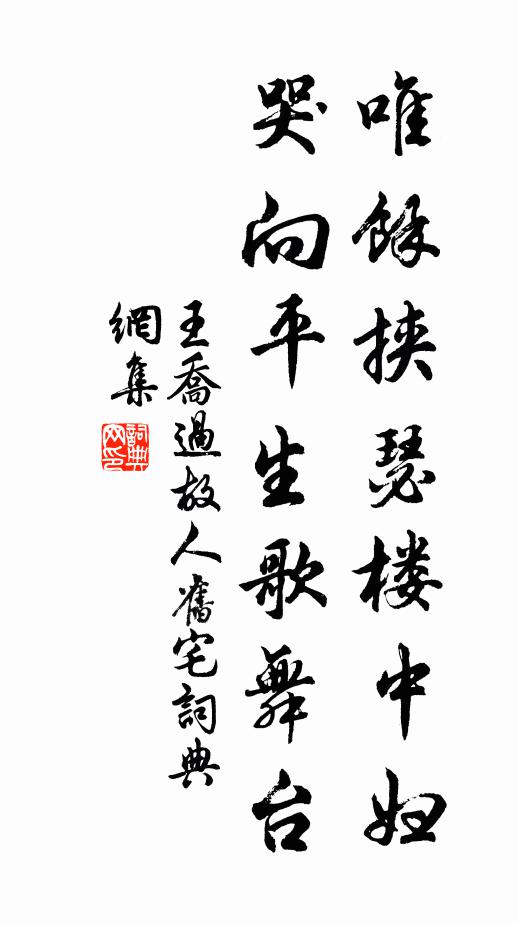 唯餘挾瑟楼中妇
哭向平生歌舞台
王喬過故人舊宅詞典
網集
詞典网印